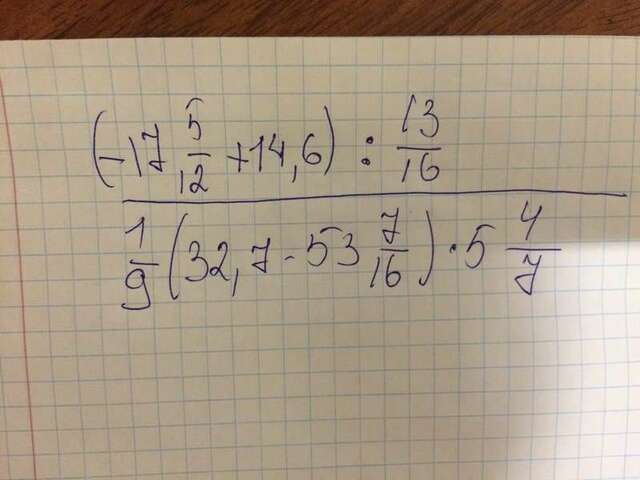 (-17 5/12 + 14,6) : 13/16
1/9 (32,7 - 53 7/16) · 5 4/7